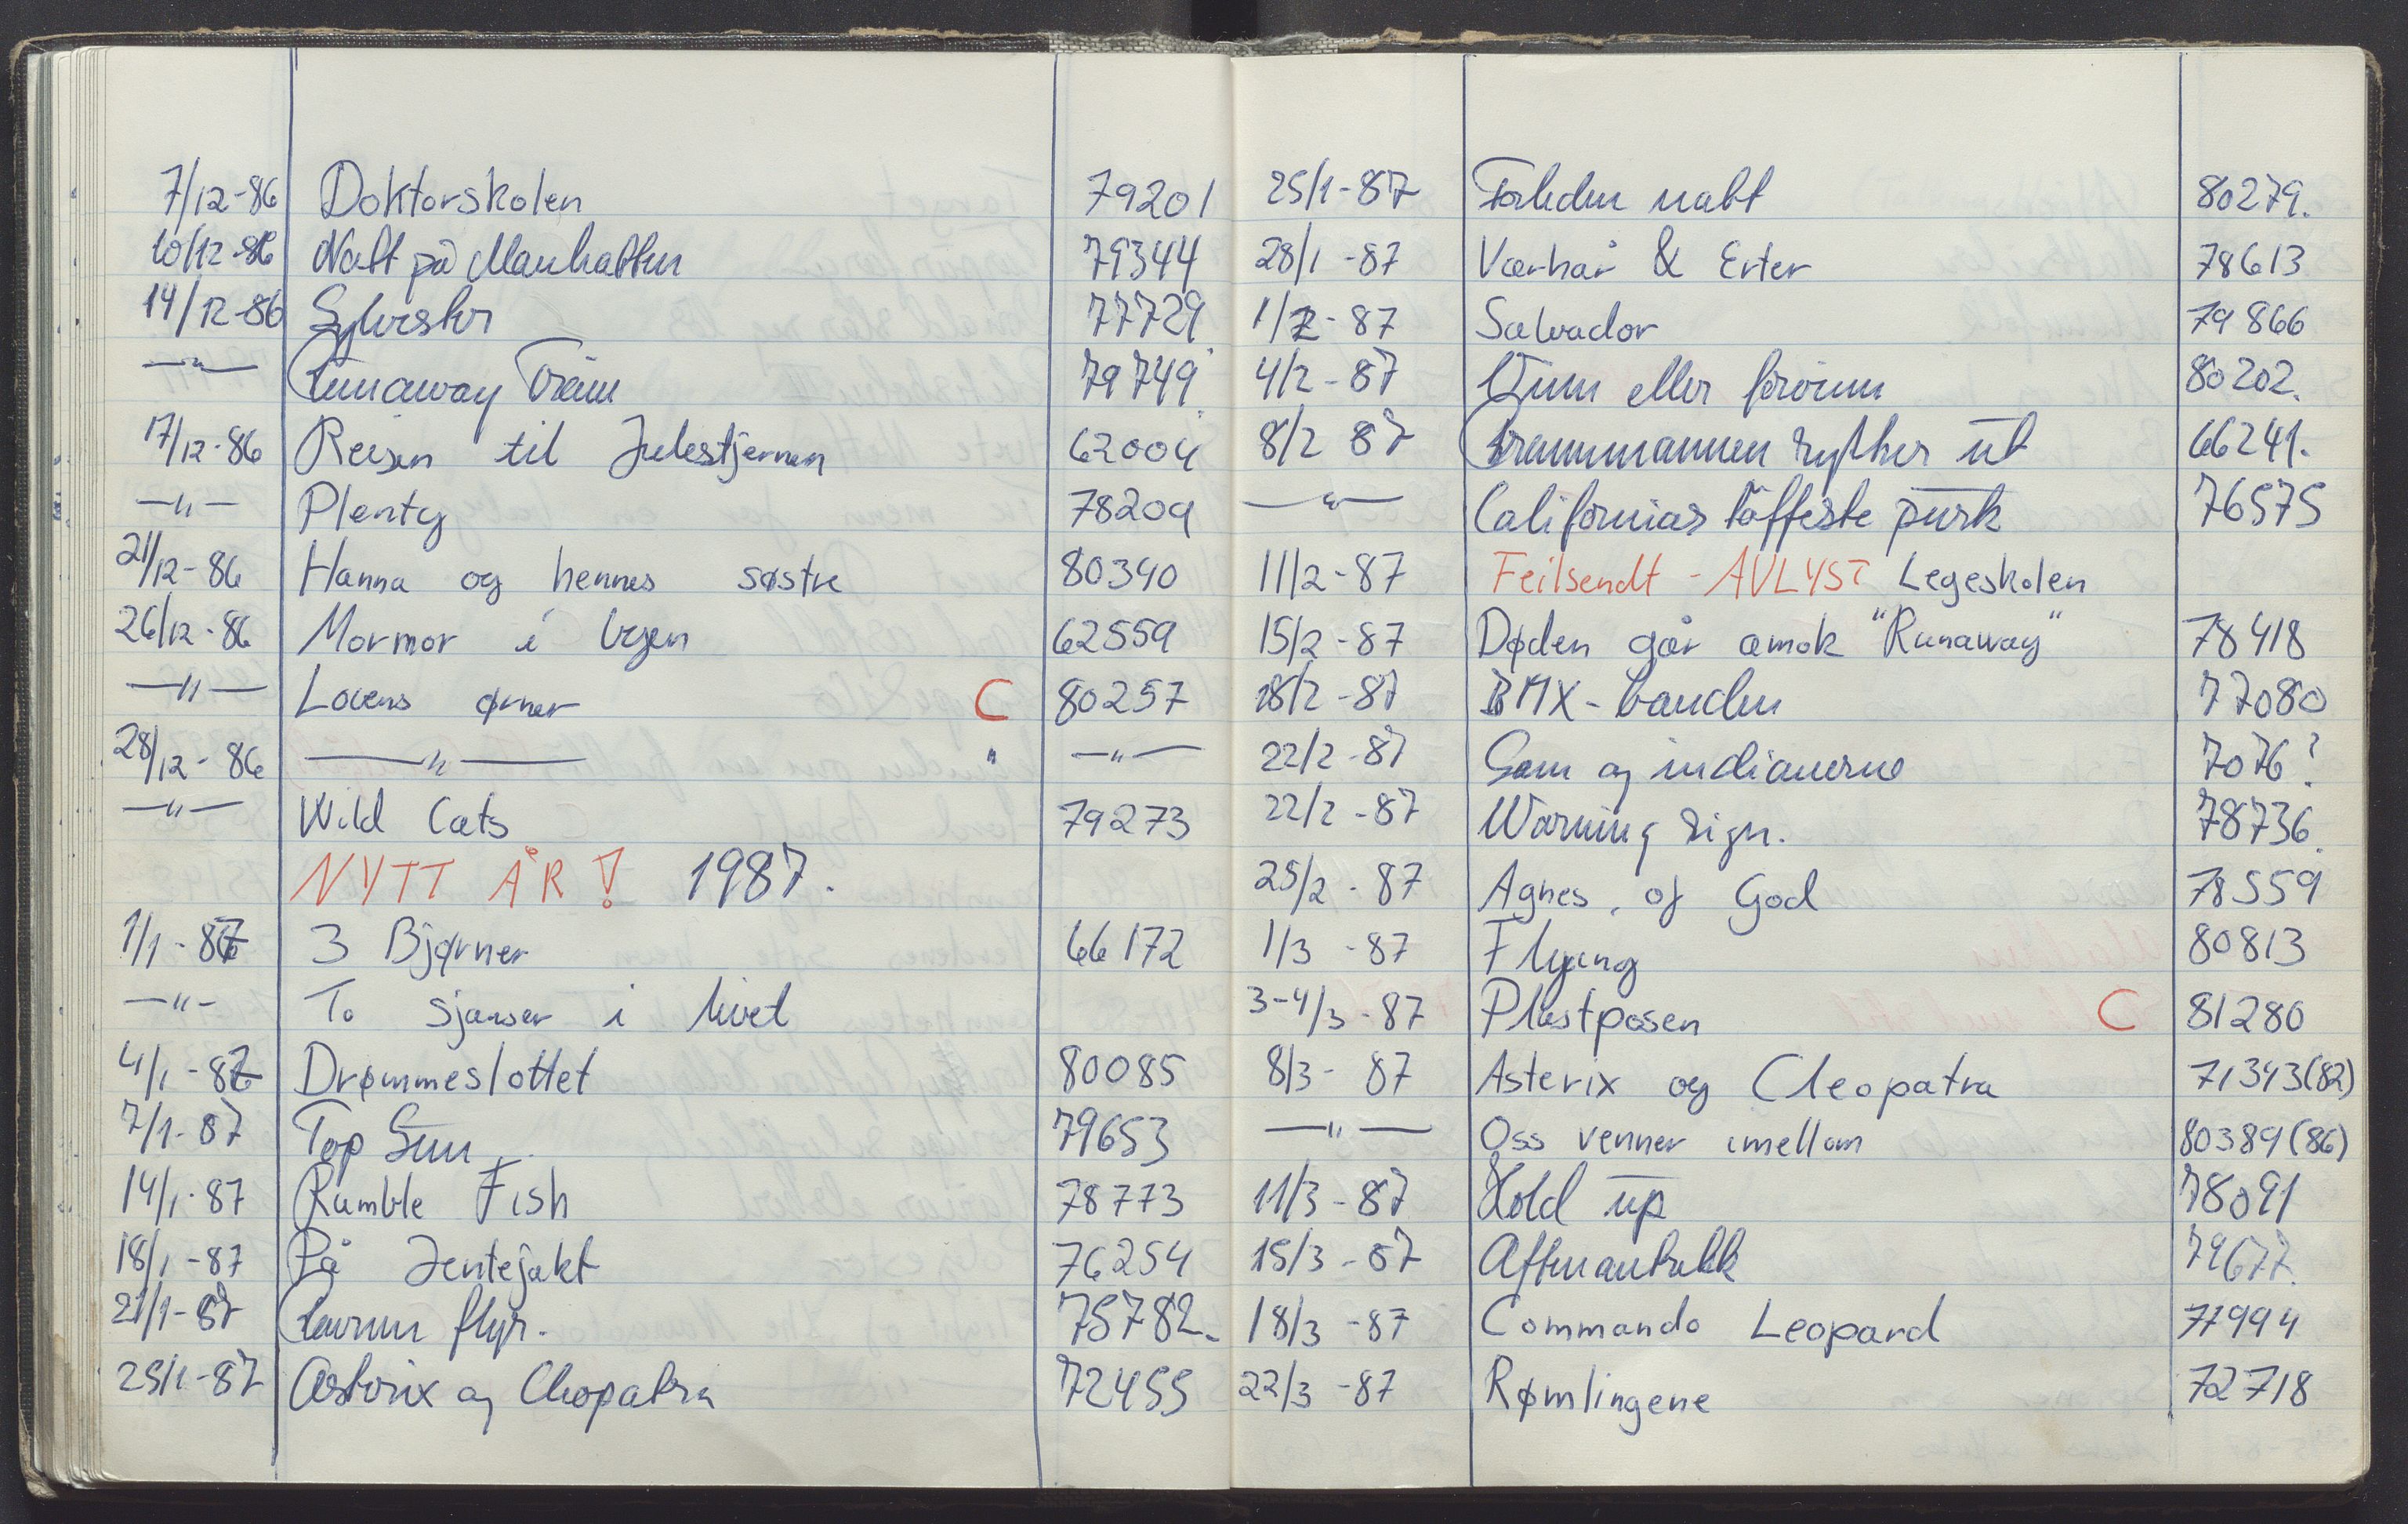 7/12-86 Doktorskolen 79201
10/12-86 Natt på Manhattan 79344
14/12-86 Sylvester 77729
—"— Runaway Train 79749
17/12-86 Reisen til Julestjernen 62004
—"— Plenty 78209
21/12-86 Hanna og hennes søstre 80340
26/12-86 Mormor i byen 62559
—"— Lovens ørner C 80257
28/12-86 —"— " —"—
—"— Wild Cats 79273
NYTT ÅR! 1987.
1/1-87 3 Bjørner 66172
—"— To sjanser i livet
4/1-87 Drømmeslottet 80085
7/1-87 Top Gun 79653
14/1-87 Rumble Fish 78773
18/1-87 På Jentejakt 76254
21/1-87 Ravnen flyr. 75782.
25/1-87 Asterix og Cleopatra 72455
25/1-87 Forleden natt 80279.
28/1-87 Værhår & Erter 78613
1/2-87 Salvador 79866
4/2-87 Vinn eller forsvinn 80202.
8/2 87 Brannmannen rykker ut 66241.
—"— Californias tøffeste purk 76575
11/2-87 Feilsendt - AVLYST Legeskolen
15/2-87 Døden går amok "Runaway" 78418
18/2-87 BMX-banden 77080
22/2-87 Sam og indianerne 7076?
22/2-87 Warning sign. 78736.
25/2-87 Agnes, of God 78559
1/3-87 Flyang 80813
3-4/3-87 Plastposen C 81280
8/3-87 Asterix og Cleopatra 71343(82)
—"— Oss venner imellom 80389(86)
11/3-87 Hold up 78091
15/3-87 Aftenantrekk 79677.
18/3-87 Commando Leopard 77994
22/3-87 Rømlingene 72718